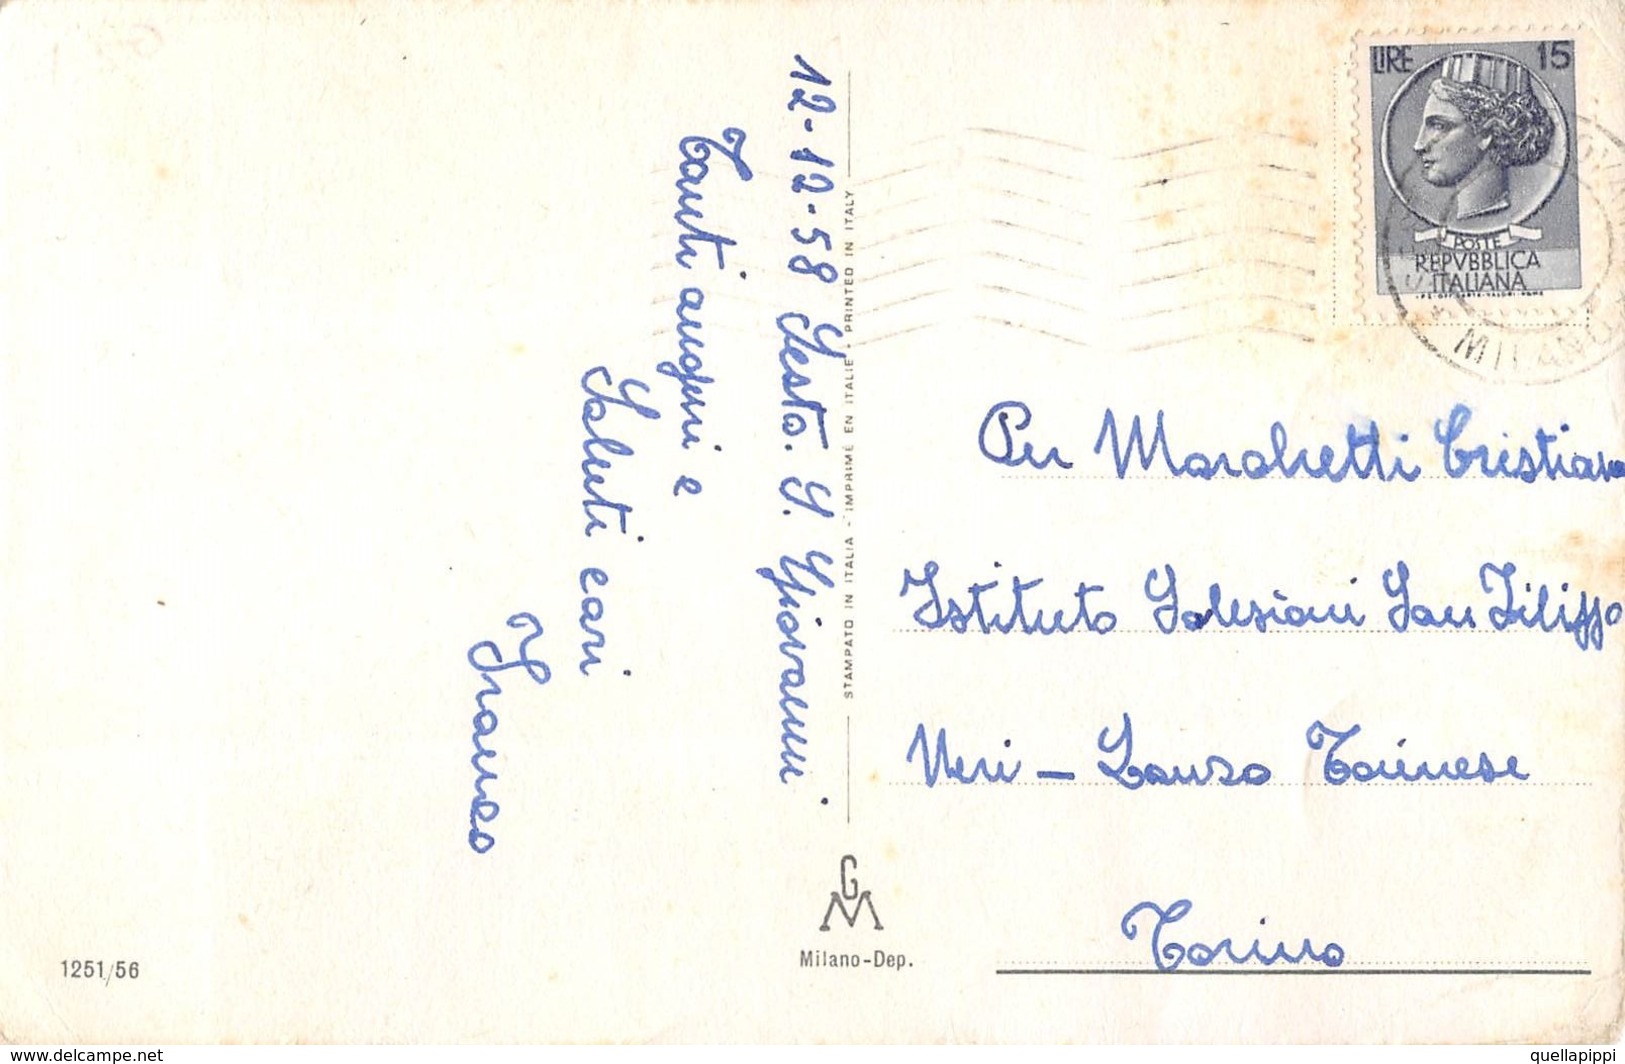 12-12-58 Sesto. S. Giovanni
Tanti auguri e
Saluti cari
Franco
STAMPATO IN ITALIA - IMPRIMÉ EN ITALIE - PRINTED IN ITALY
LIRE 15
POSTE
REPVBBLICA
ITALIANA
MILANO
Per Marchetti Cristiano
Istituto Salesiani San Filippo
Neri - Lanzo Torinese
Torino
GM
Milano-Dep.
1251/56
www.delcampe.net
quellapippi